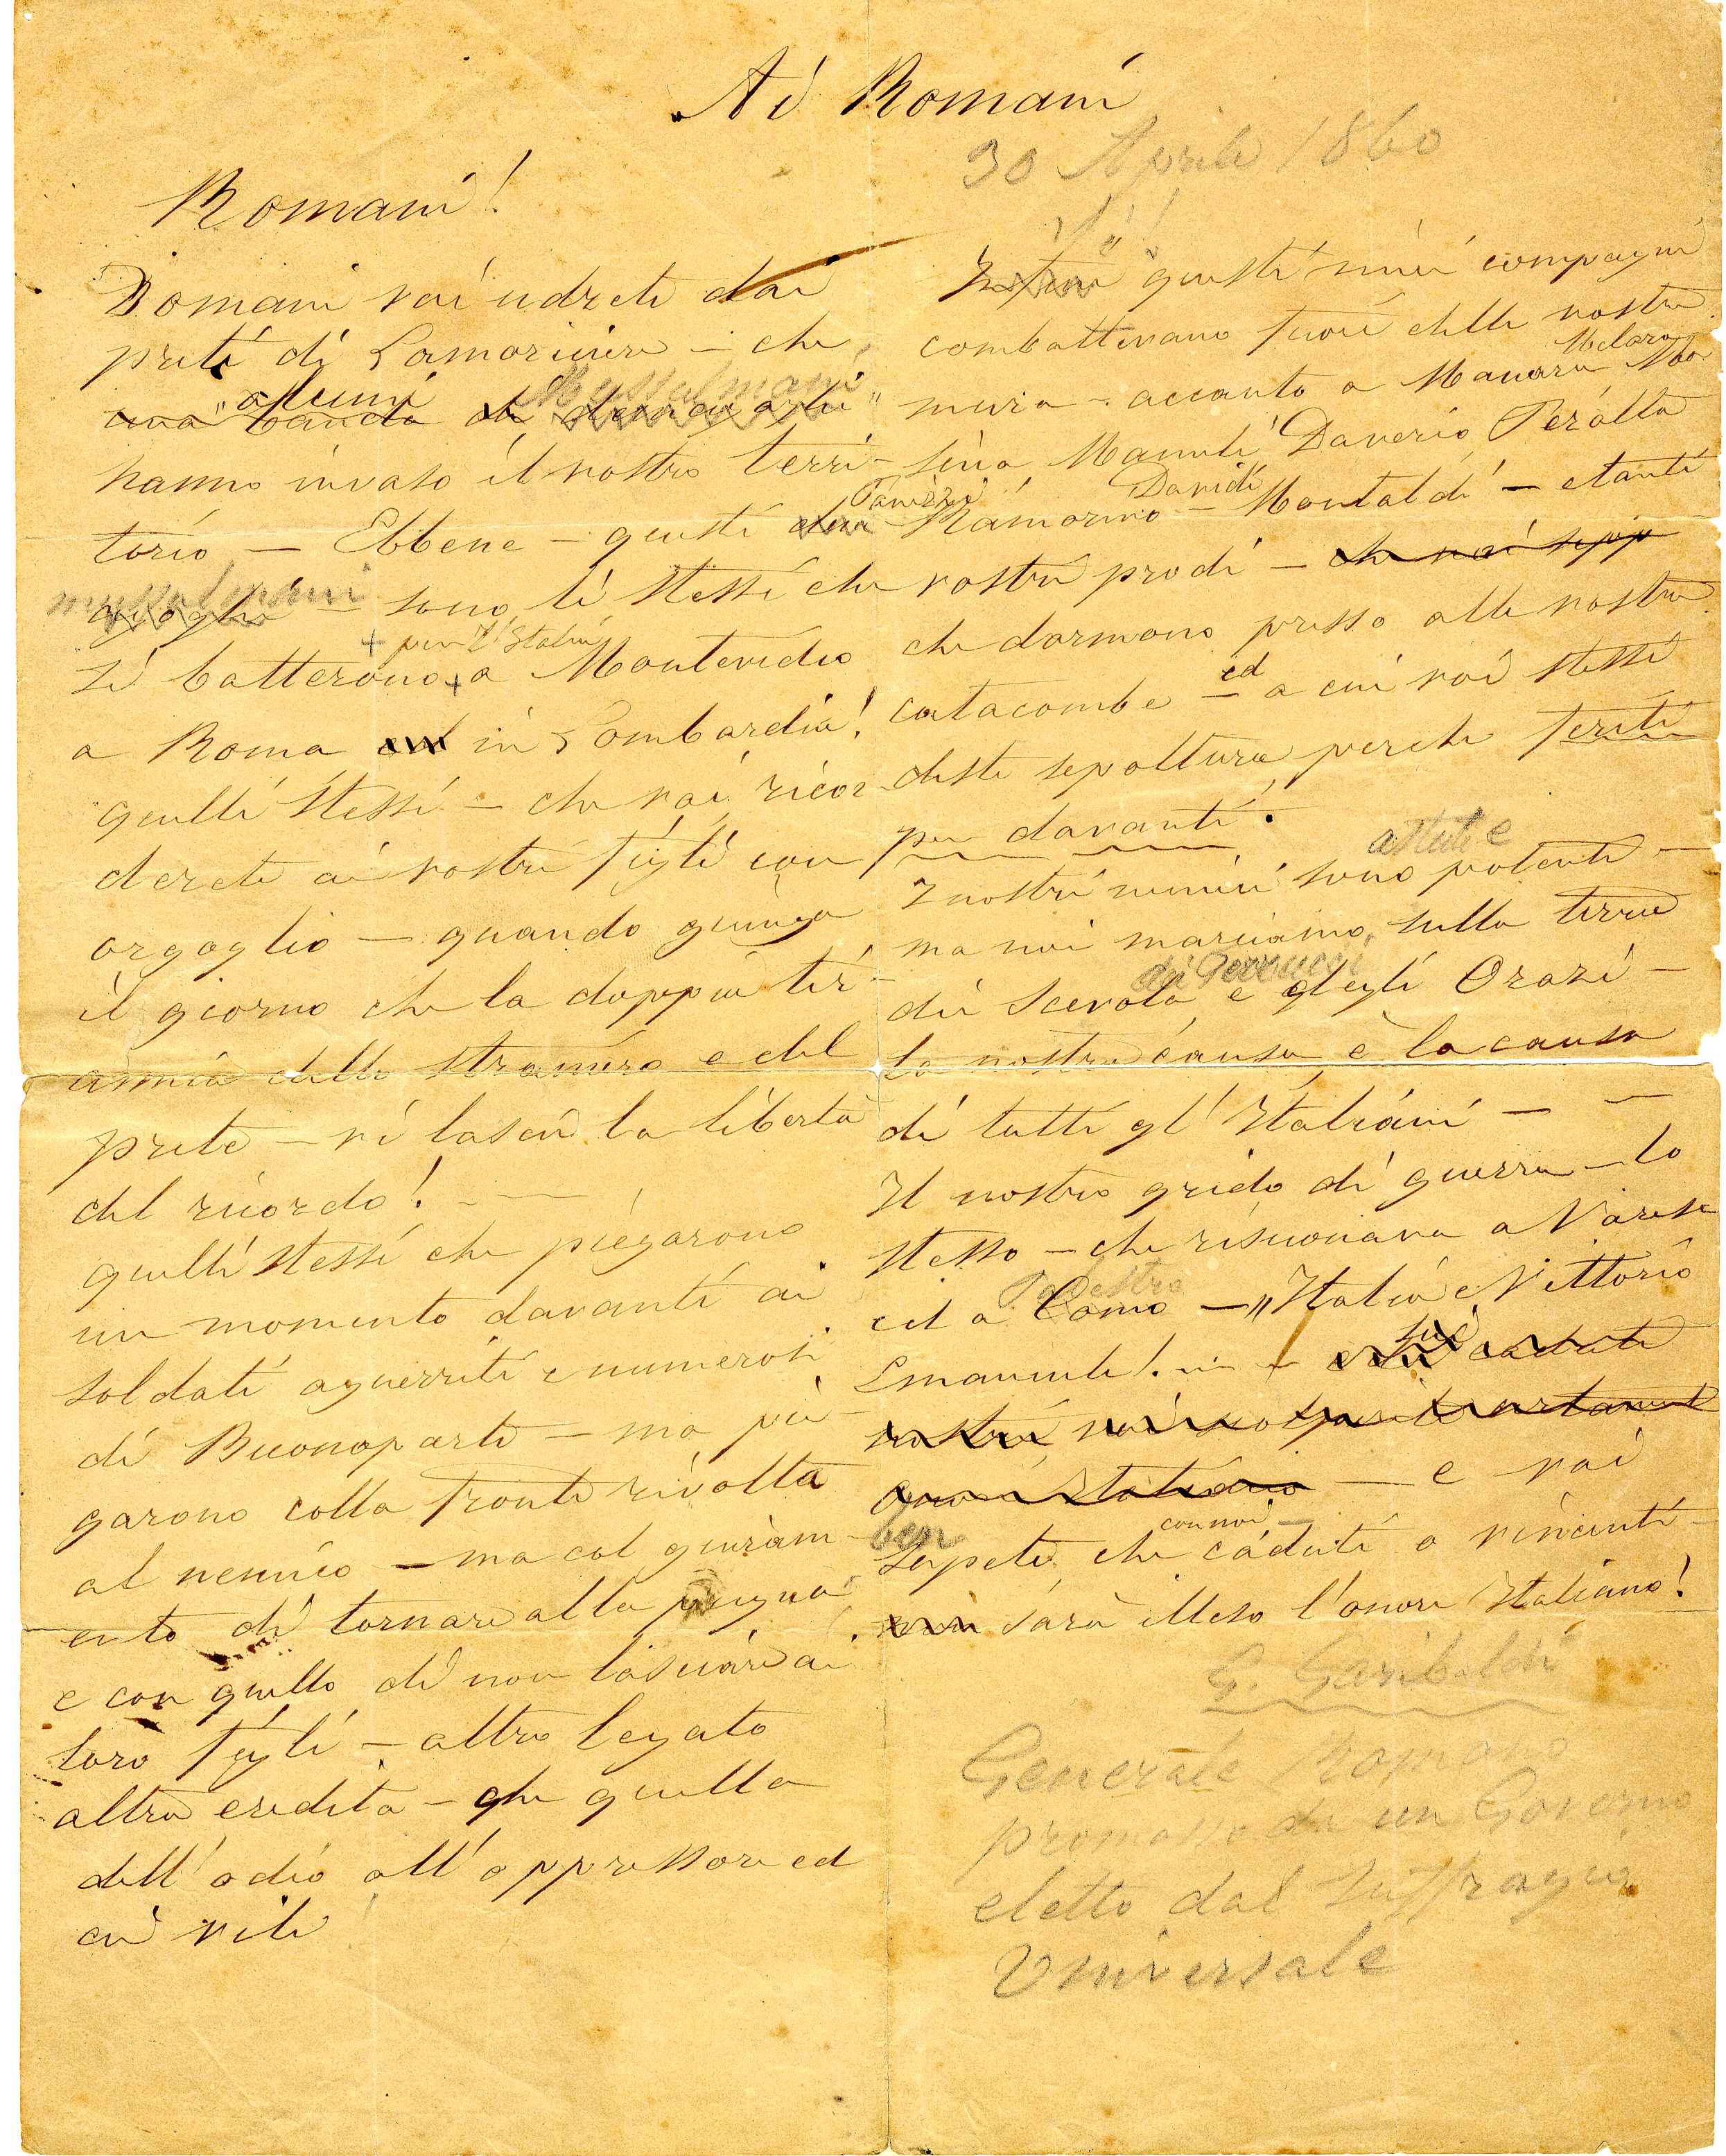 Ai Romani
30 Aprile 1860
Romani!
Domani voi udrete dai
preti di Lamoriciere – che
alcuni Mussulmani
una banda di
hanno invaso il vostro terri-
torio – Ebbene – questi
mussulmani – sono li stessi che
+ per l'Italia
si batterono + a Montevideo
a Roma ed in Lombardia!
quelli stessi – che voi ricor-
derete ai vostri figli con
orgoglio – quando giunga
il giorno che la doppia tir-
annia dello straniero e del
prete – vi lasci la libertà
del ricordo! –
quelli stessi che piegarono
un momento davanti ai
soldati agguerriti e numerosi
di Buonaparte – ma pie-
garono colla fronte rivolta
al nemico – ma col giuram-
ento di tornare alla pugna
e con quello di non lasciare ai
loro figli – altro legato
altra eredità – che quella
dell'odio all'oppressore ed
ai vili
Sì!
questi miei compagni
combattevano fuori delle vostre
mura – accanto a Manara Melara Ma-
sina Mameli Daverio Peralta
Panizzi Ramorino – Davidi Montaldi – e tanti
vostri prodi – che voi sepp
che dormono presso alle vostre
catacombe – ed a cui voi stessi
deste sepoltura perche feriti
per davanti.
I nostri nemici sono astuti e potenti –
ma noi marciamo sulla terra
dei Scevola dei Ferrucci e degli Orazi –
la nostra causa è la causa
di tutti gl'Italiani –
Il nostro grido di guerra – lo
stesso – che risuonava a Varese
ed a Como – "Italia e Vittorio
Palestro
Emanuele! "
– e voi
ben
sapete che con noi caduti o vincenti –
sarà illeso l'onore Italiano!
G. Garibaldi
Generale Romano
promosso da un Governo
eletto dal Suffragio
Universale